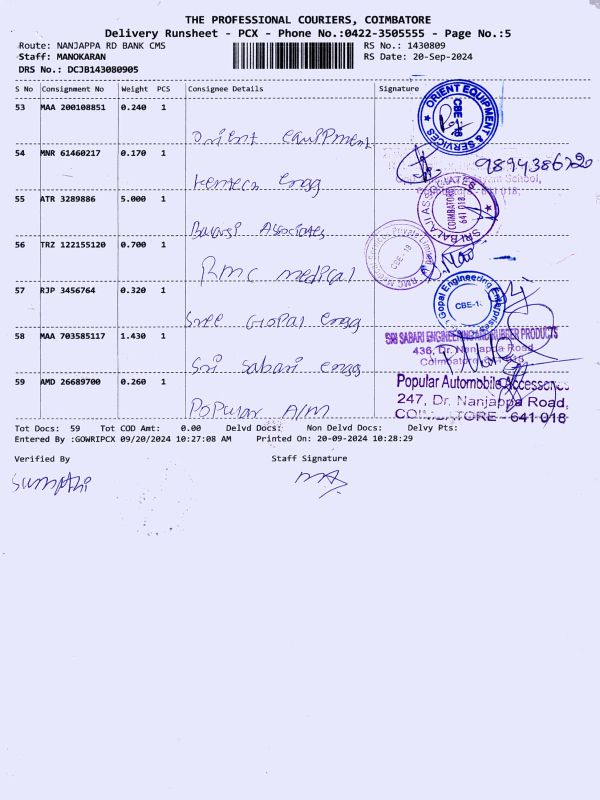 THE PROFESSIONAL COURIERS, COIMBATORE
Delivery Runsheet - PCX - Phone No.:0422-3505555 - Page No.:5
Route: NANJAPPA RD BANK CMS
RS No.: 1430809
Staff: MANOKARAN
RS Date: 20-Sep-2024
DRS No.: DCJB143080905
S No Consignment No Weight PCS Consignee Details Signature
53 MAA 200108851 0.240 1
ORIENT EQUIPMENT & SERVICES
CBE-18
Orient Equipment
54 MNR 61460217 0.170 1
9894386720
School,
018.
Engg
55 ATR 3289886 5.000 1
SRI BALAJI ASSOCIATES
COIMBATORE
641 018.
Balaji Associates
56 TRZ 122155120 0.700 1
RMC Private Limited
CBE-18
RMC medical
57 RJP 3456764 0.320 1
Gopal Engineering Enterprises
CBE-18
Sree Gopal Engg
58 MAA 703585117 1.430 1
SRI SABARI ENGINEERING AND RUBBER PRODUCTS
436, Dr. Nanjappa Road,
Coimbatore
Sri Sabari Engg
59 AMD 26689700 0.260 1
Popular Automobile Accessories
247, Dr. Nanjappa Road,
COIMBATORE - 641 018
Popular A/M
Tot Docs: 59 Tot COD Amt: 0.00 Delvd Docs: Non Delvd Docs: Delvy Pts:
Entered By :GOWRIPCX 09/20/2024 10:27:08 AM Printed On: 20-09-2024 10:28:29
Verified By
Staff Signature
Sumathi